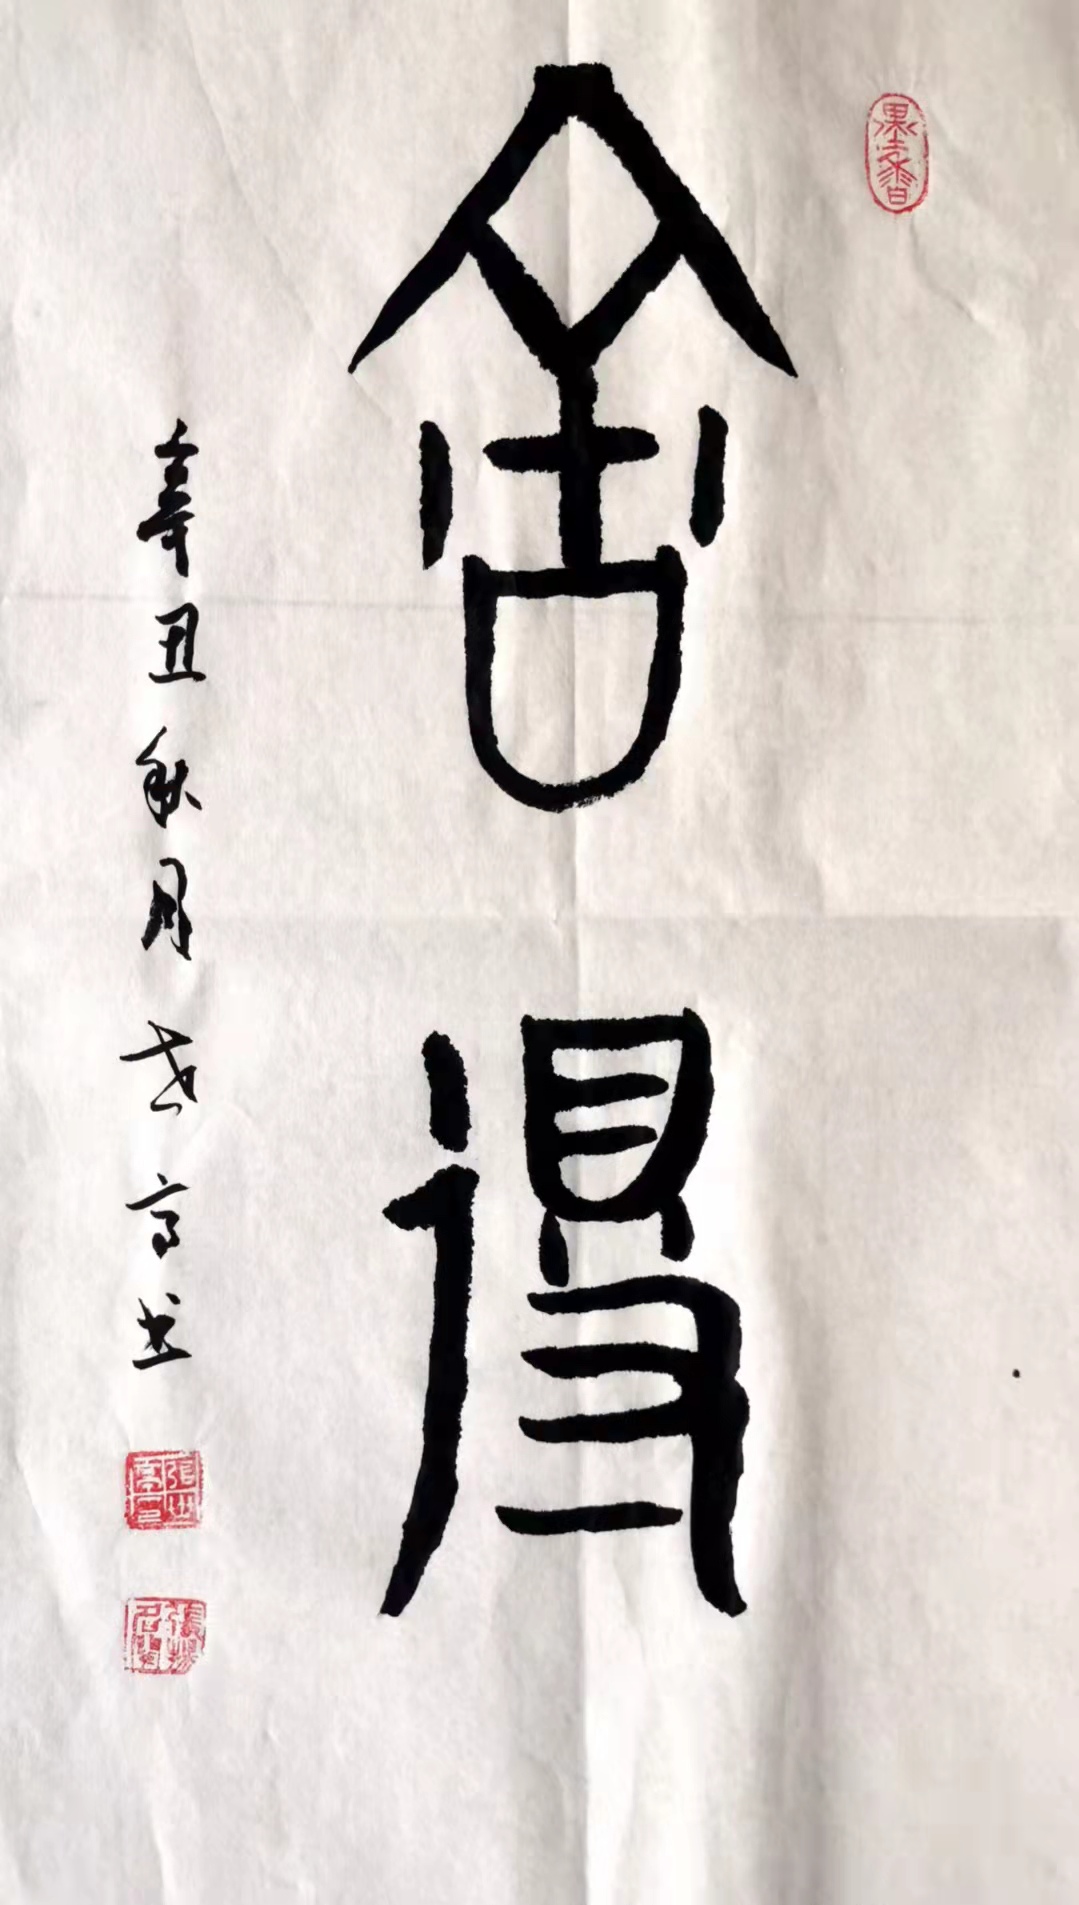 舍得
辛丑秋月世高书
墨香